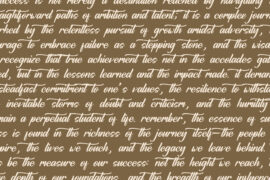 success is not merely a destination reached by navigating
straightforward paths of ambition and talent; it is a complex journey
marked by the relentless pursuit of growth amidst adversity,
courage to embrace failure as a stepping stone, and the wisdom
recognize that true achievement lies not in the accolades gathered
but in the lessons learned and the impact made. it demands
steadfast commitment to one's values, the resilience to withstand
inevitable storms of doubt and criticism, and the humility
remain a perpetual student of life. remember, the essence of success
is found in the richness of the journey itself—the people
inspire, the lives we touch, and the legacy we leave behind.
be the measure of our success: not the height we reach,
depth of our foundations and the breadth of our influence